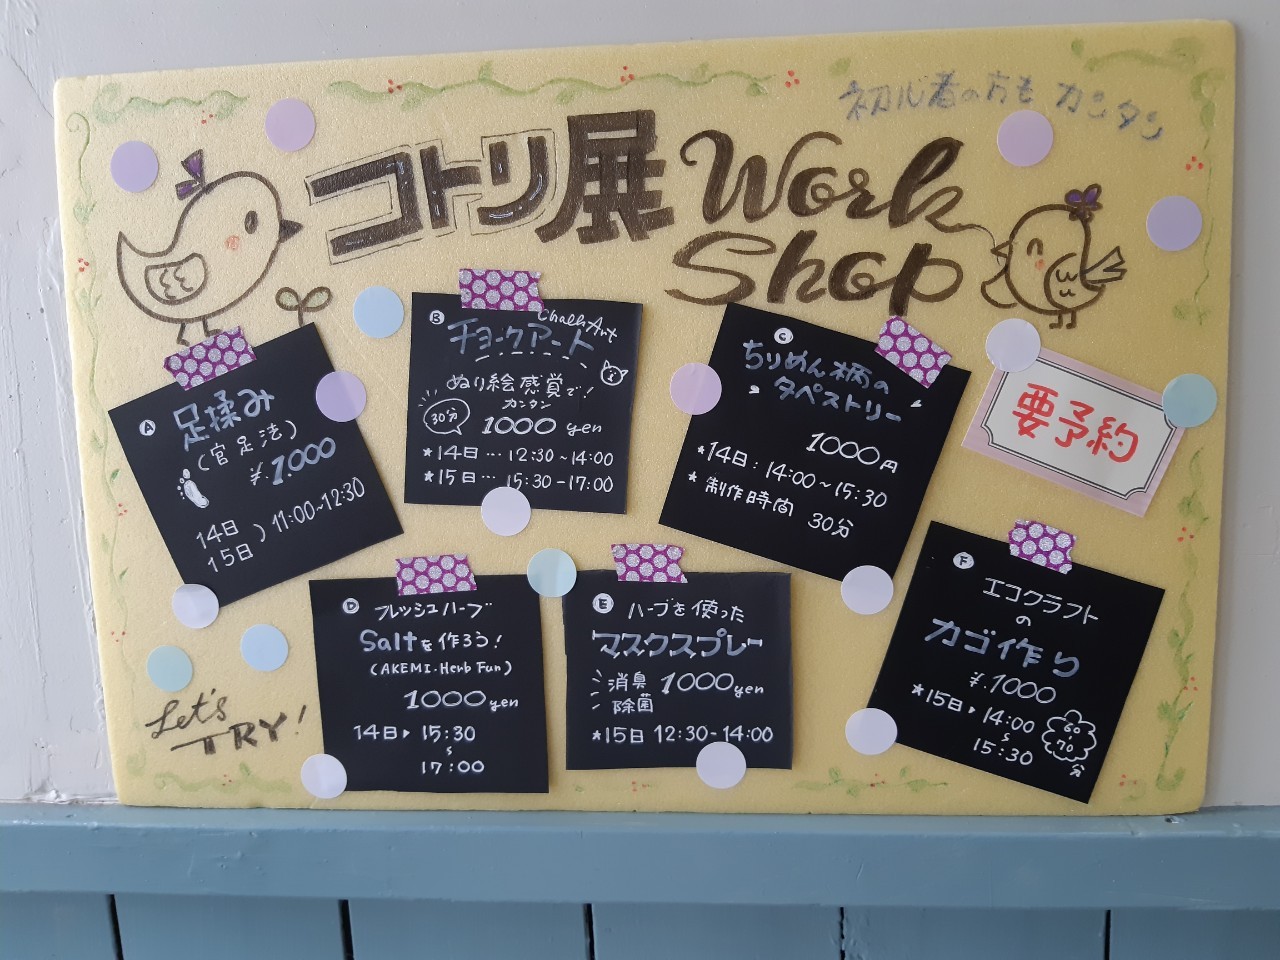 初心者の方も カンタン
コトリ展 Work
Shop
要予約
A
足揉み
(官足法)
¥.1.000
14日
15日 ) 11:00~12:30
B
Chalk Art
チョークアート
ぬり絵感覚で!
カンタン
30分
1000 yen
*14日…12:30~14:00
*15日…15:30-17:00
C
ちりめん柄の
タペストリー
1000円
*14日:14:00~15:30
*制作時間 30分
D
フレッシュハーブ
Saltを作ろう!
(AKEMI.Herb Fun)
1000 yen
14日▸ 15:30
~
17:00
E
ハーブを使った
マスクスプレー
消臭
除菌
1000 yen
*15日 12:30-14:00
F
エコクラフト
の
カゴ作り
¥.1000
*15日▸ 14:00
~
15:30
60
~
70
分
Let's
TRY!